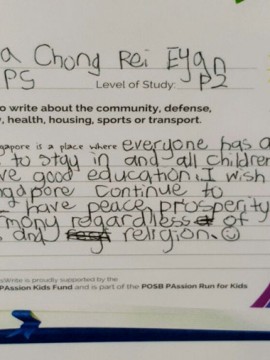 a Chong Rei Eyan
PS Level of Study: P2
o write about the community, defense,
, health, housing, sports or transport.
gapore is a place where everyone has a
to stay in and all children
ve good education. I wish
ngapore continue to
have peace, prosperity
mony regardless of
and religion. ☺
Write is proudly supported by the
PAssion Kids Fund and is part of the POSB PAssion Run for Kids